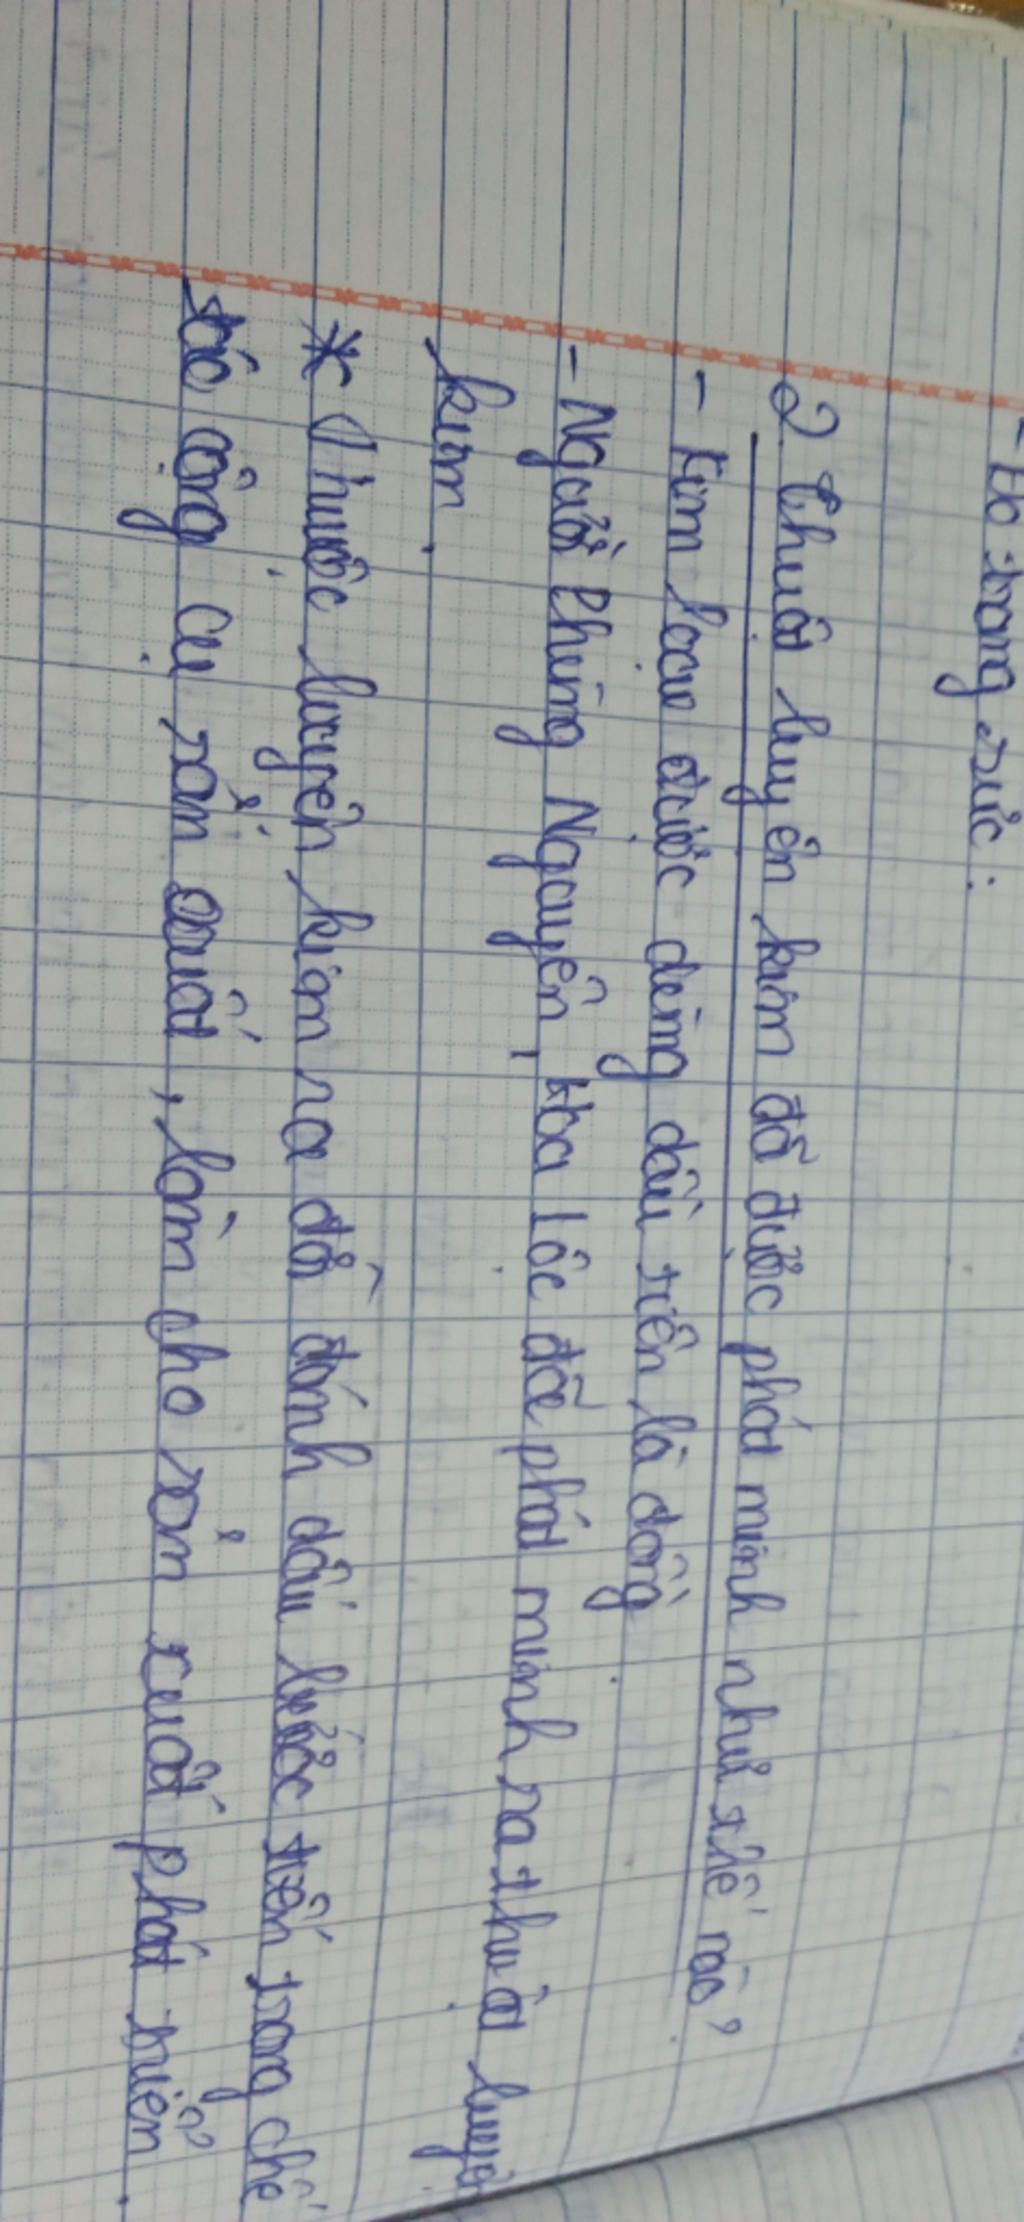 - Đồ trang sức.
2. Thuật luyện kim đã được phát minh như thế nào?
- Kim loại được dùng đầu tiên là đồng
- Người Phùng Nguyên, Hoa Lộc đã phát minh ra thuật luyện
kim.
* Thuộc luyện kim ra đời đánh dấu bước tiến trong chế
tác công cụ sản xuất, làm cho sản xuất phát triển.